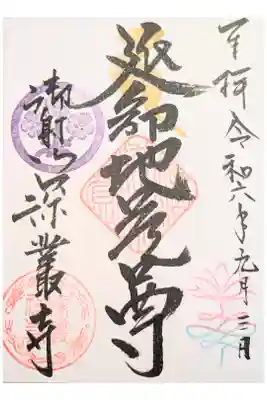 奉拝 令和六年元月三日
延命地蔵尊
御射山 深叢寺